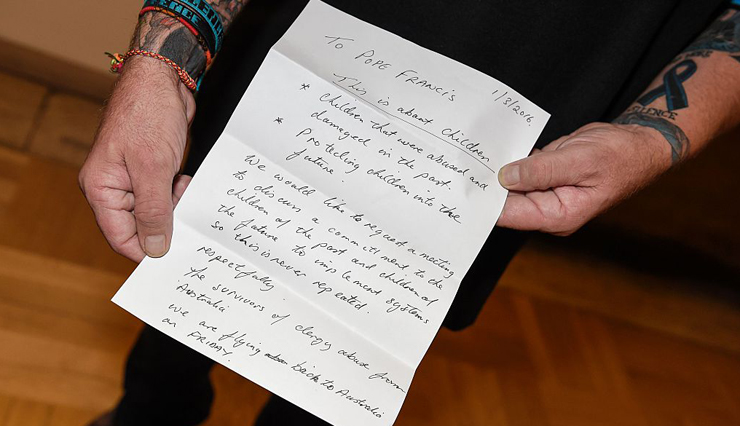 To POPE FRANCIS
1/3/2016.
This is about children
* Children that were abused and
damaged in the past.
* Protecting children into the
future.
We would like to request a meeting
to discuss a commitment to the
children of the past and children of
the future to implement systems
so this is never repeated.
respectfully.
the survivors of clergy abuse from
Australia
we are flying back to Australia
on FRIDAY.
LENCE